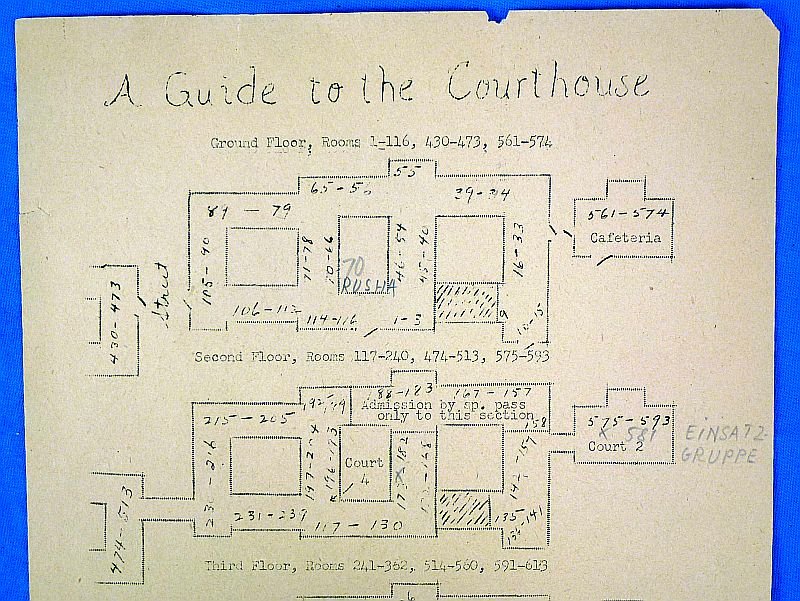 A Guide to the Courthouse
Ground Floor, Rooms 1-116, 430-473, 561-574
55
65-56
39-34
89 - 79
561-574
Cafeteria
105-90
71-78
70-66
46-54
45-40
16-33
70
RUSHA
Street
430-473
106-112
114-116
1-3
9
10-15
Second Floor, Rooms 117-240, 474-513, 575-593
188-183
167-157
192-189
Admission by sp. pass
only to this section
215-205
158
575-593
X 581
EINSATZ-
GRUPPE
Court 2
197-204
196-193
Court
4
231-239
117-130
135
136-141
474-513
Third Floor, Rooms 241-362, 514-560, 591-613
6